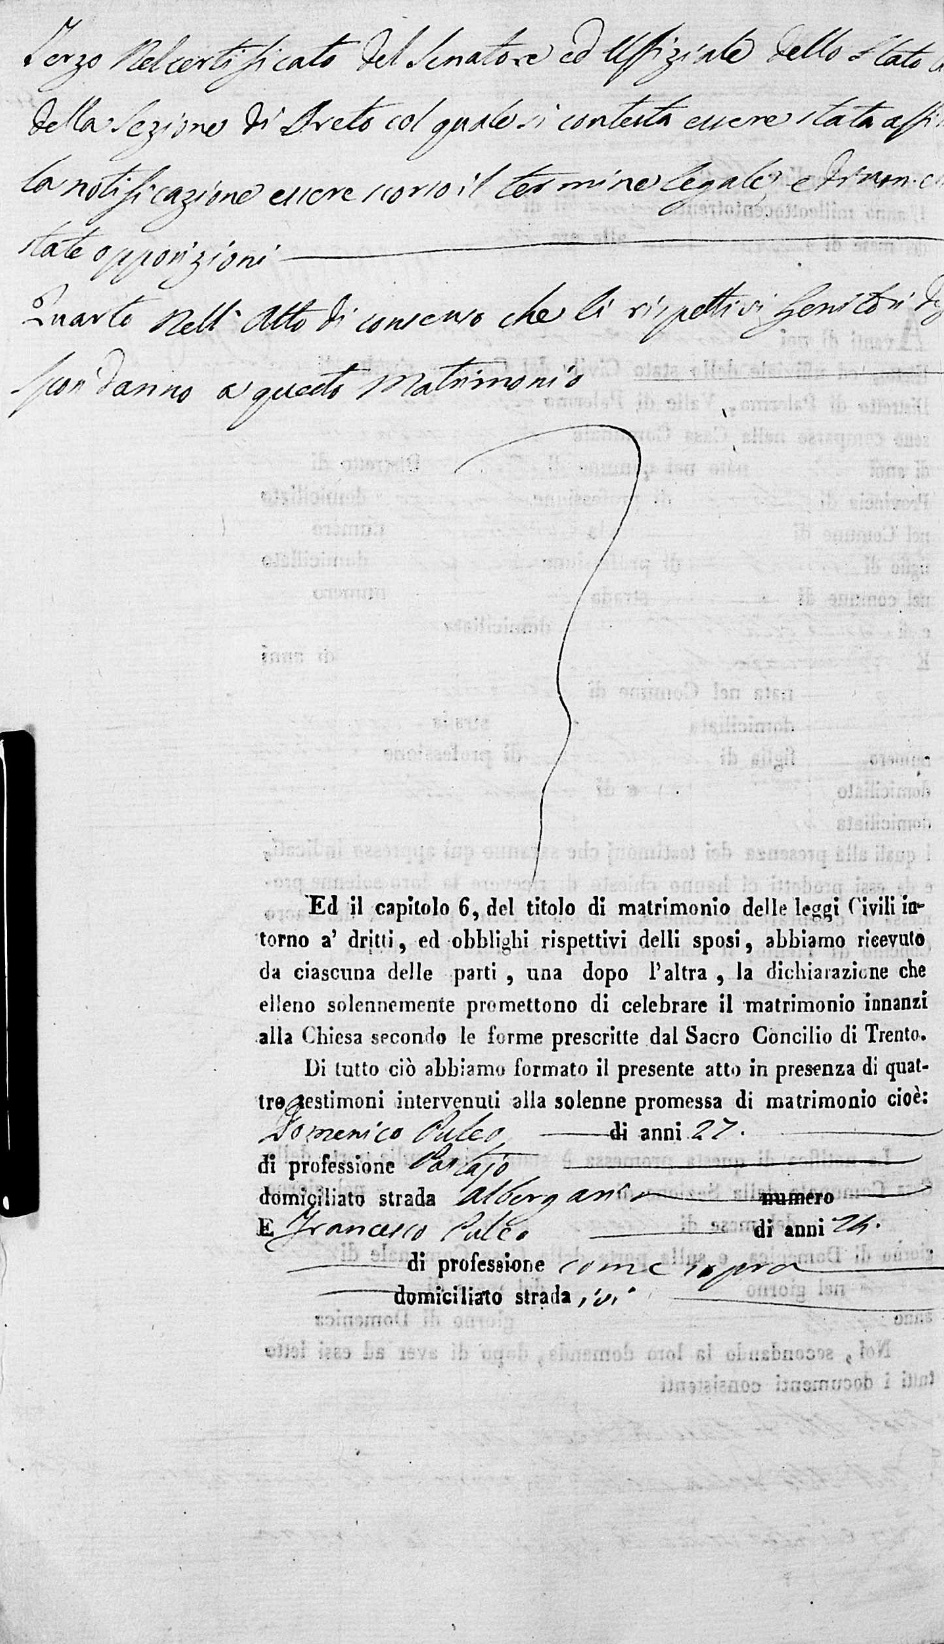 Terzo Nel certificato del Senatore ed Uffiziale dello Stato
della Sezione di Oreto col quale si contesta essere stata affi
la notificazione essere scorso il termine legale, e di non
state opposizioni
Quarto Nell'Atto di consenso che li rispettivi Genitori
danno a questo Matrimonio
Ed il capitolo 6, del titolo di matrimonio delle leggi Civili in-
torno a' dritti, ed obblighi rispettivi delli sposi, abbiamo ricevuto
da ciascuna delle parti, una dopo l'altra, la dichiarazione che
elleno solennemente promettono di celebrare il matrimonio innanzi
alla Chiesa secondo le forme prescritte dal Sacro Concilio di Trento.
Di tutto ciò abbiamo formato il presente atto in presenza di quat-
tro testimoni intervenuti alla solenne promessa di matrimonio cioè:
Domenico Puleo di anni 27.
di professione
domiciliato strada Albergaria numero
E Francesco Puleo di anni 24.
di professione come sopra
domiciliato strada ivi